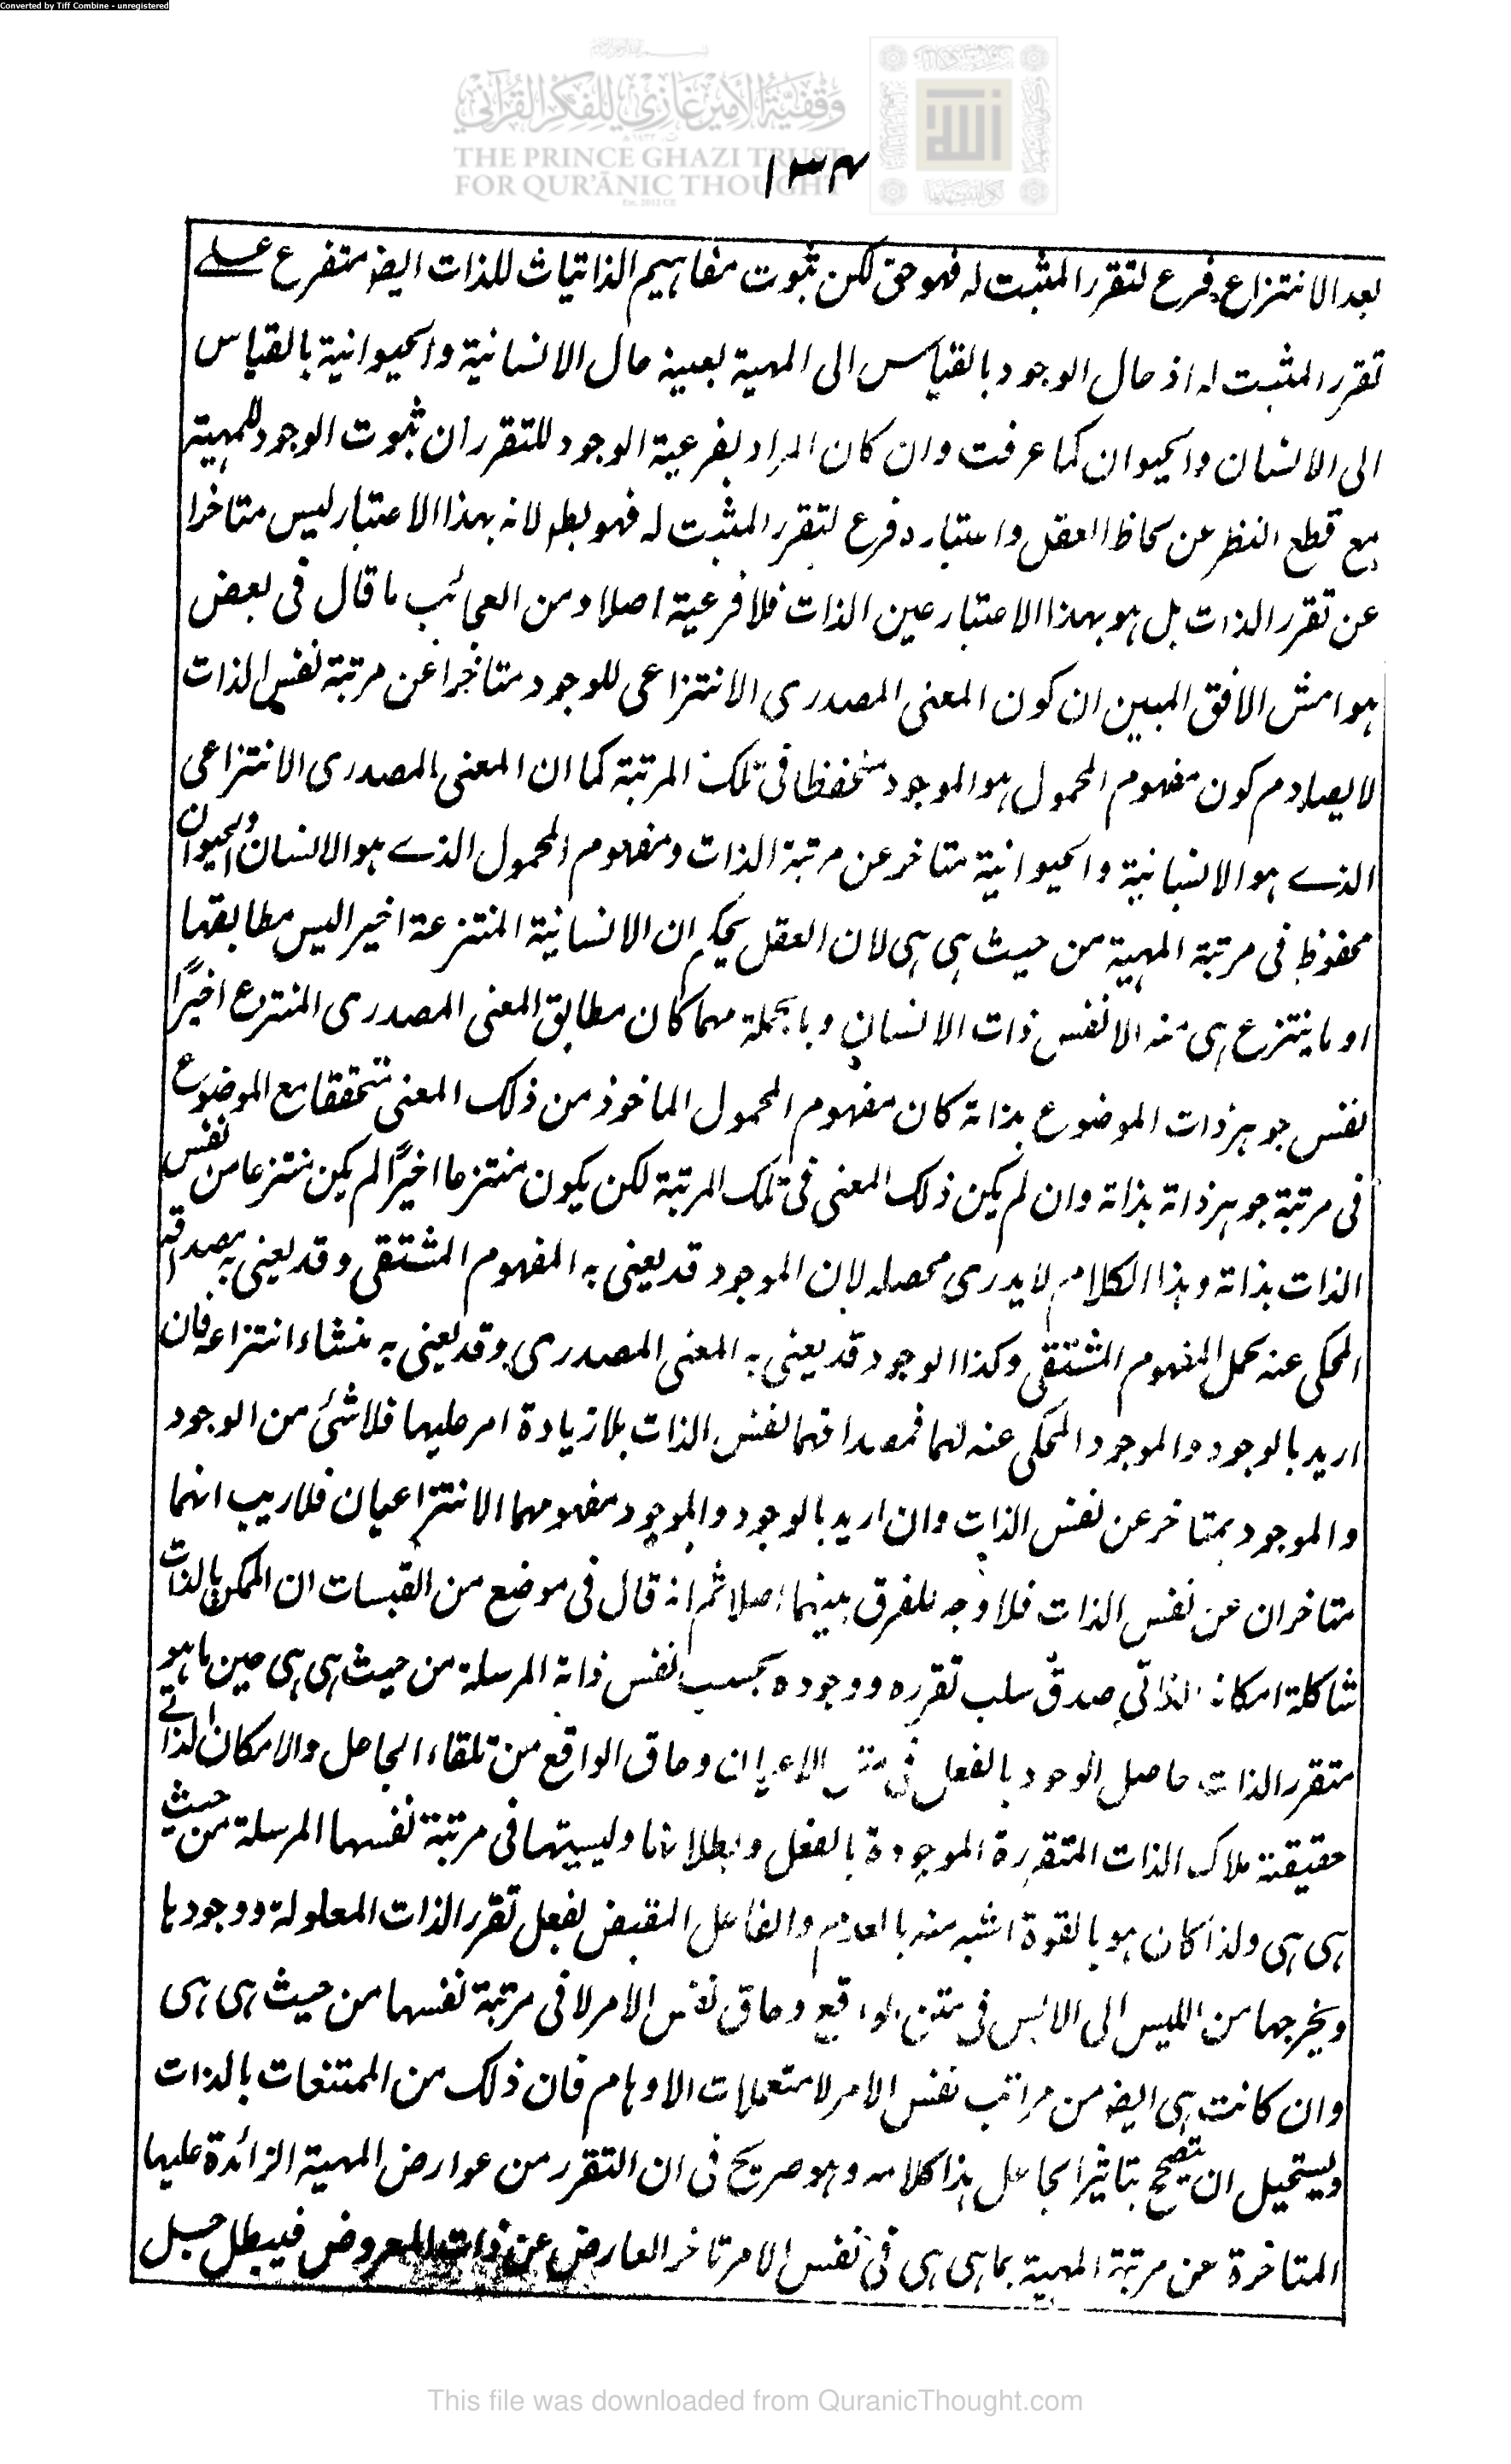 Converted by Tiff Combine - unregistered
وقفية الأمير غازي للفكر القرآني
THE PRINCE GHAZI TRUST
FOR QUR'ĀNIC THOUGHT
١٣٤
بعد الانتزاع فرع لتقرر المثبت له فهو حق لكن ثبوت مفاهيم الذاتيات للذات ايضا متفرع على
تقرر المثبت له اذ حال الوجود بالقياس الى المهية بعينه حال الانسانية والحيوانية بالقياس
الى الانسان والحيوان كما عرفت وان كان المراد بفرعية الوجود للتقرر ان ثبوت الوجود للمهية
مع قطع النظر عن لحاظ العقل واعتباره فرع لتقرر المثبت له فهو بط لانه بهذا الاعتبار ليس متاخرا
عن تقرر الذات بل هو بهذا الاعتبار عين الذات فلا فرعية اصلا ومن العجائب ما قال فى بعض
هوامش الافق المبين ان كون المعنى المصدرى الانتزاعى للوجود متاخرا عن مرتبة نفس الذات
لا يصادم كون مفهوم المحمول هو الموجود منحفظا فى تلك المرتبة كما ان المعنى المصدرى الانتزاعى
الذے هو الانسانية والحيوانية متاخر عن مرتبة الذات ومفهوم المحمول الذے هو الانسان والحيوان
محفوظ فى مرتبة المهية من حيث هى هى لان العقل يحكم ان الانسانية المنتزعة اخيرا ليس مطابقها
او ما ينتزع هى منه الا نفس ذات الانسان وبالجملة مهما كان مطابق المعنى المصدرى المنتزع اخيرًا
نفس جوهر ذات الموضوع بذاته كان مفهوم المحمول الماخوذ من ذلك المعنى متحققا مع الموضوع
فى مرتبة جوهر ذاته بذاته وان لم يكن ذلك المعنى فى تلك المرتبة لكن يكون منتزعا اخيرًا لم يكن منتزعا من نفس
الذات بذاته وهذا الكلام لا يدرى محصله لان الموجود قد يعنى به المفهوم المشتقى وقد يعنى به مصداقه
المحكى عنه بحمل المفهوم المشتقى وكذا الوجود قد يعنى به المعنى المصدرى وقد يعنى به منشاء انتزاعه فان
اريد بالوجود والموجود المحكى عنه لهما فمصداقهما نفس الذات بلا زيادة امر عليها فلا شئ من الوجود
والموجود بمتاخر عن نفس الذات وان اريد بالوجود والموجود مفهومهما الانتزاعيان فلا ريب انهما
متاخران عن نفس الذات فلا وجه للفرق بينهما اصلا ثم انه قال فى موضع من القبسات ان الممكن بالذات
شاكلة امكانه الذاتى صدق سلب تقرره ووجوده بحسب نفس ذاته المرسلة من حيث هى هى حين ما هو
متقرر الذات حاصل الوجود بالفعل فى متن الاعيان وحاق الواقع من تلقاء الجاعل والامكان الذاتے
حقيقته ملاك الذات المتقررة الموجودة بالفعل وبطلانها وليسيتها فى مرتبة نفسها المرسلة من حيث
هى هى ولذا كان هو بالقوة اشبه منه بالعدم والفاعل المفيض يفعل تقرر الذات المعلولة ووجودها
ويخرجها من الليس الى الايس فى متن الواقع وحاق نفس الامر لا فى مرتبة نفسها من حيث هى هى
وان كانت هى ايضا من مراتب نفس الامر لا متعملات الاوهام فان ذلك من الممتنعات بالذات
ويستحيل ان يتصحح بتاثير الجاعل هذا كلامه وهو صريح فى ان التقرر من عوارض المهية الزائدة عليها
المتاخرة عن مرتبة المهية بما هى هى فى نفس الامر تاخر العارض عن ذات المعروض فيبطل جعل
This file was downloaded from QuranicThought.com